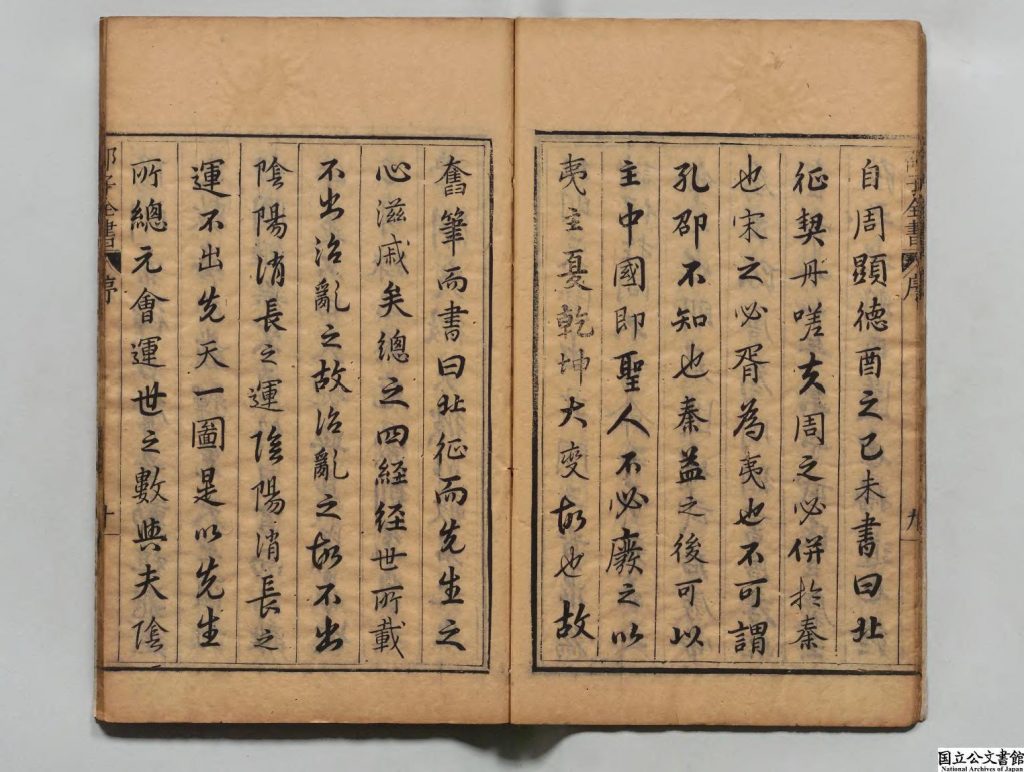 自周顯德酉之已未書曰北
征契丹嗟夫周之必併扵秦
也宋之必胥為夷也不可謂
孔卲不知也秦益之後可以
主中國即聖人不必廢之以
夷主夏乾坤大变故也故
奮筆而書曰北征而先生之
心滋戚矣總之四經経世所載
不出治亂之故治亂之故不出
陰陽消長之運陰陽消長之
運不出先天一圖是以先生
所總元會運世之數與夫陰
子全書
序
九
子全書
序
十一
国立公文書館
National Archives of Japan